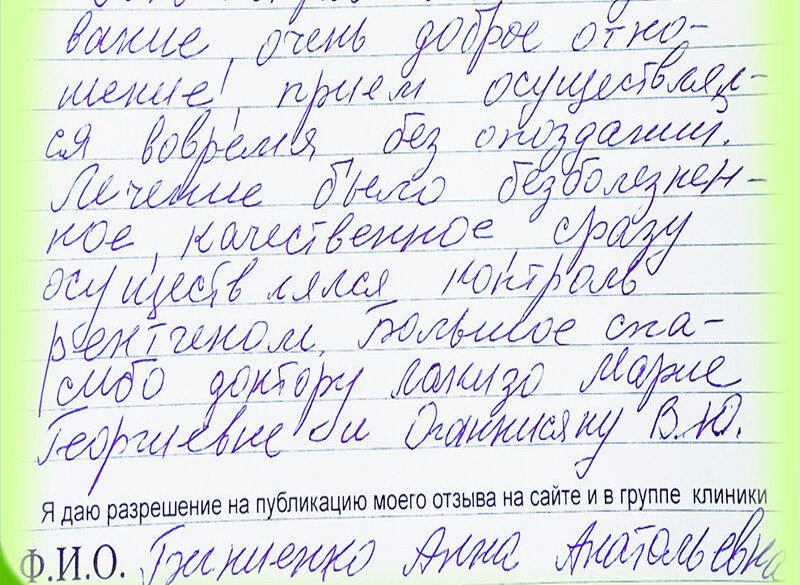 вание, очень доброе отно-
шение, прием осуществлял-
ся вовремя без опозданий.
Лечение было безболезнен-
ное, качественное сразу
осуществлялся контроль
рентгеном. Большое спа-
сибо доктору Марие
Георгиевне и Оганнисяну В.Ю.
Я даю разрешение на публикацию моего отзыва на сайте и в группе клиники
Ф.И.О. Анна Анатольевна